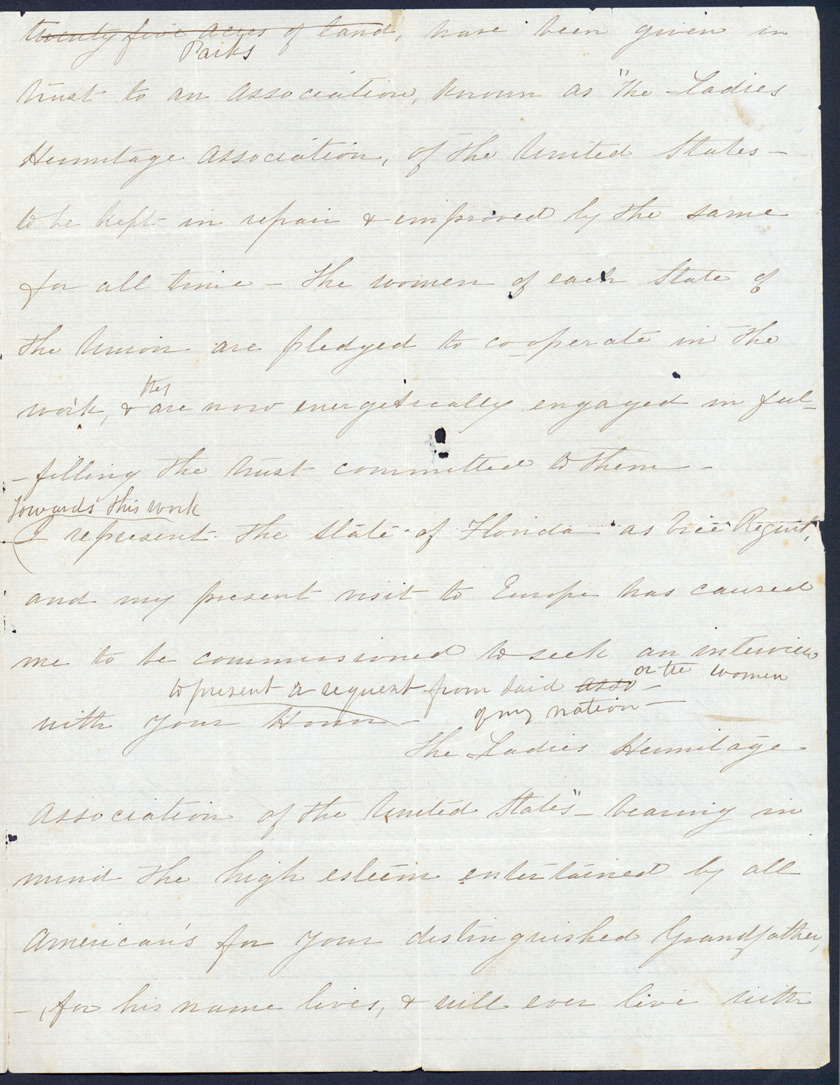 twenty five acres of land, have been given in
Parks
trust to an association, known as "The Ladies
Hermitage Association, of the United States -
to be kept in repair & improved by the same
for all time - The women of each State of
the Union are pledged to co-operate in the
they
work, & are now energetically engaged in ful-
-filling the trust committed to them -
Towards this work
I represent the State of Florida as Vice Regent,
and my present visit to Europe has caused
me to be commissioned to seek an interview
to present a request from said asso- or the women
with your Honor - of my nation -
The Ladies Hermitage
Association of the United States" - bearing in
mind the high esteem entertained by all
American's for your distinguished Grandfather,
-, for his name lives, & will ever live with